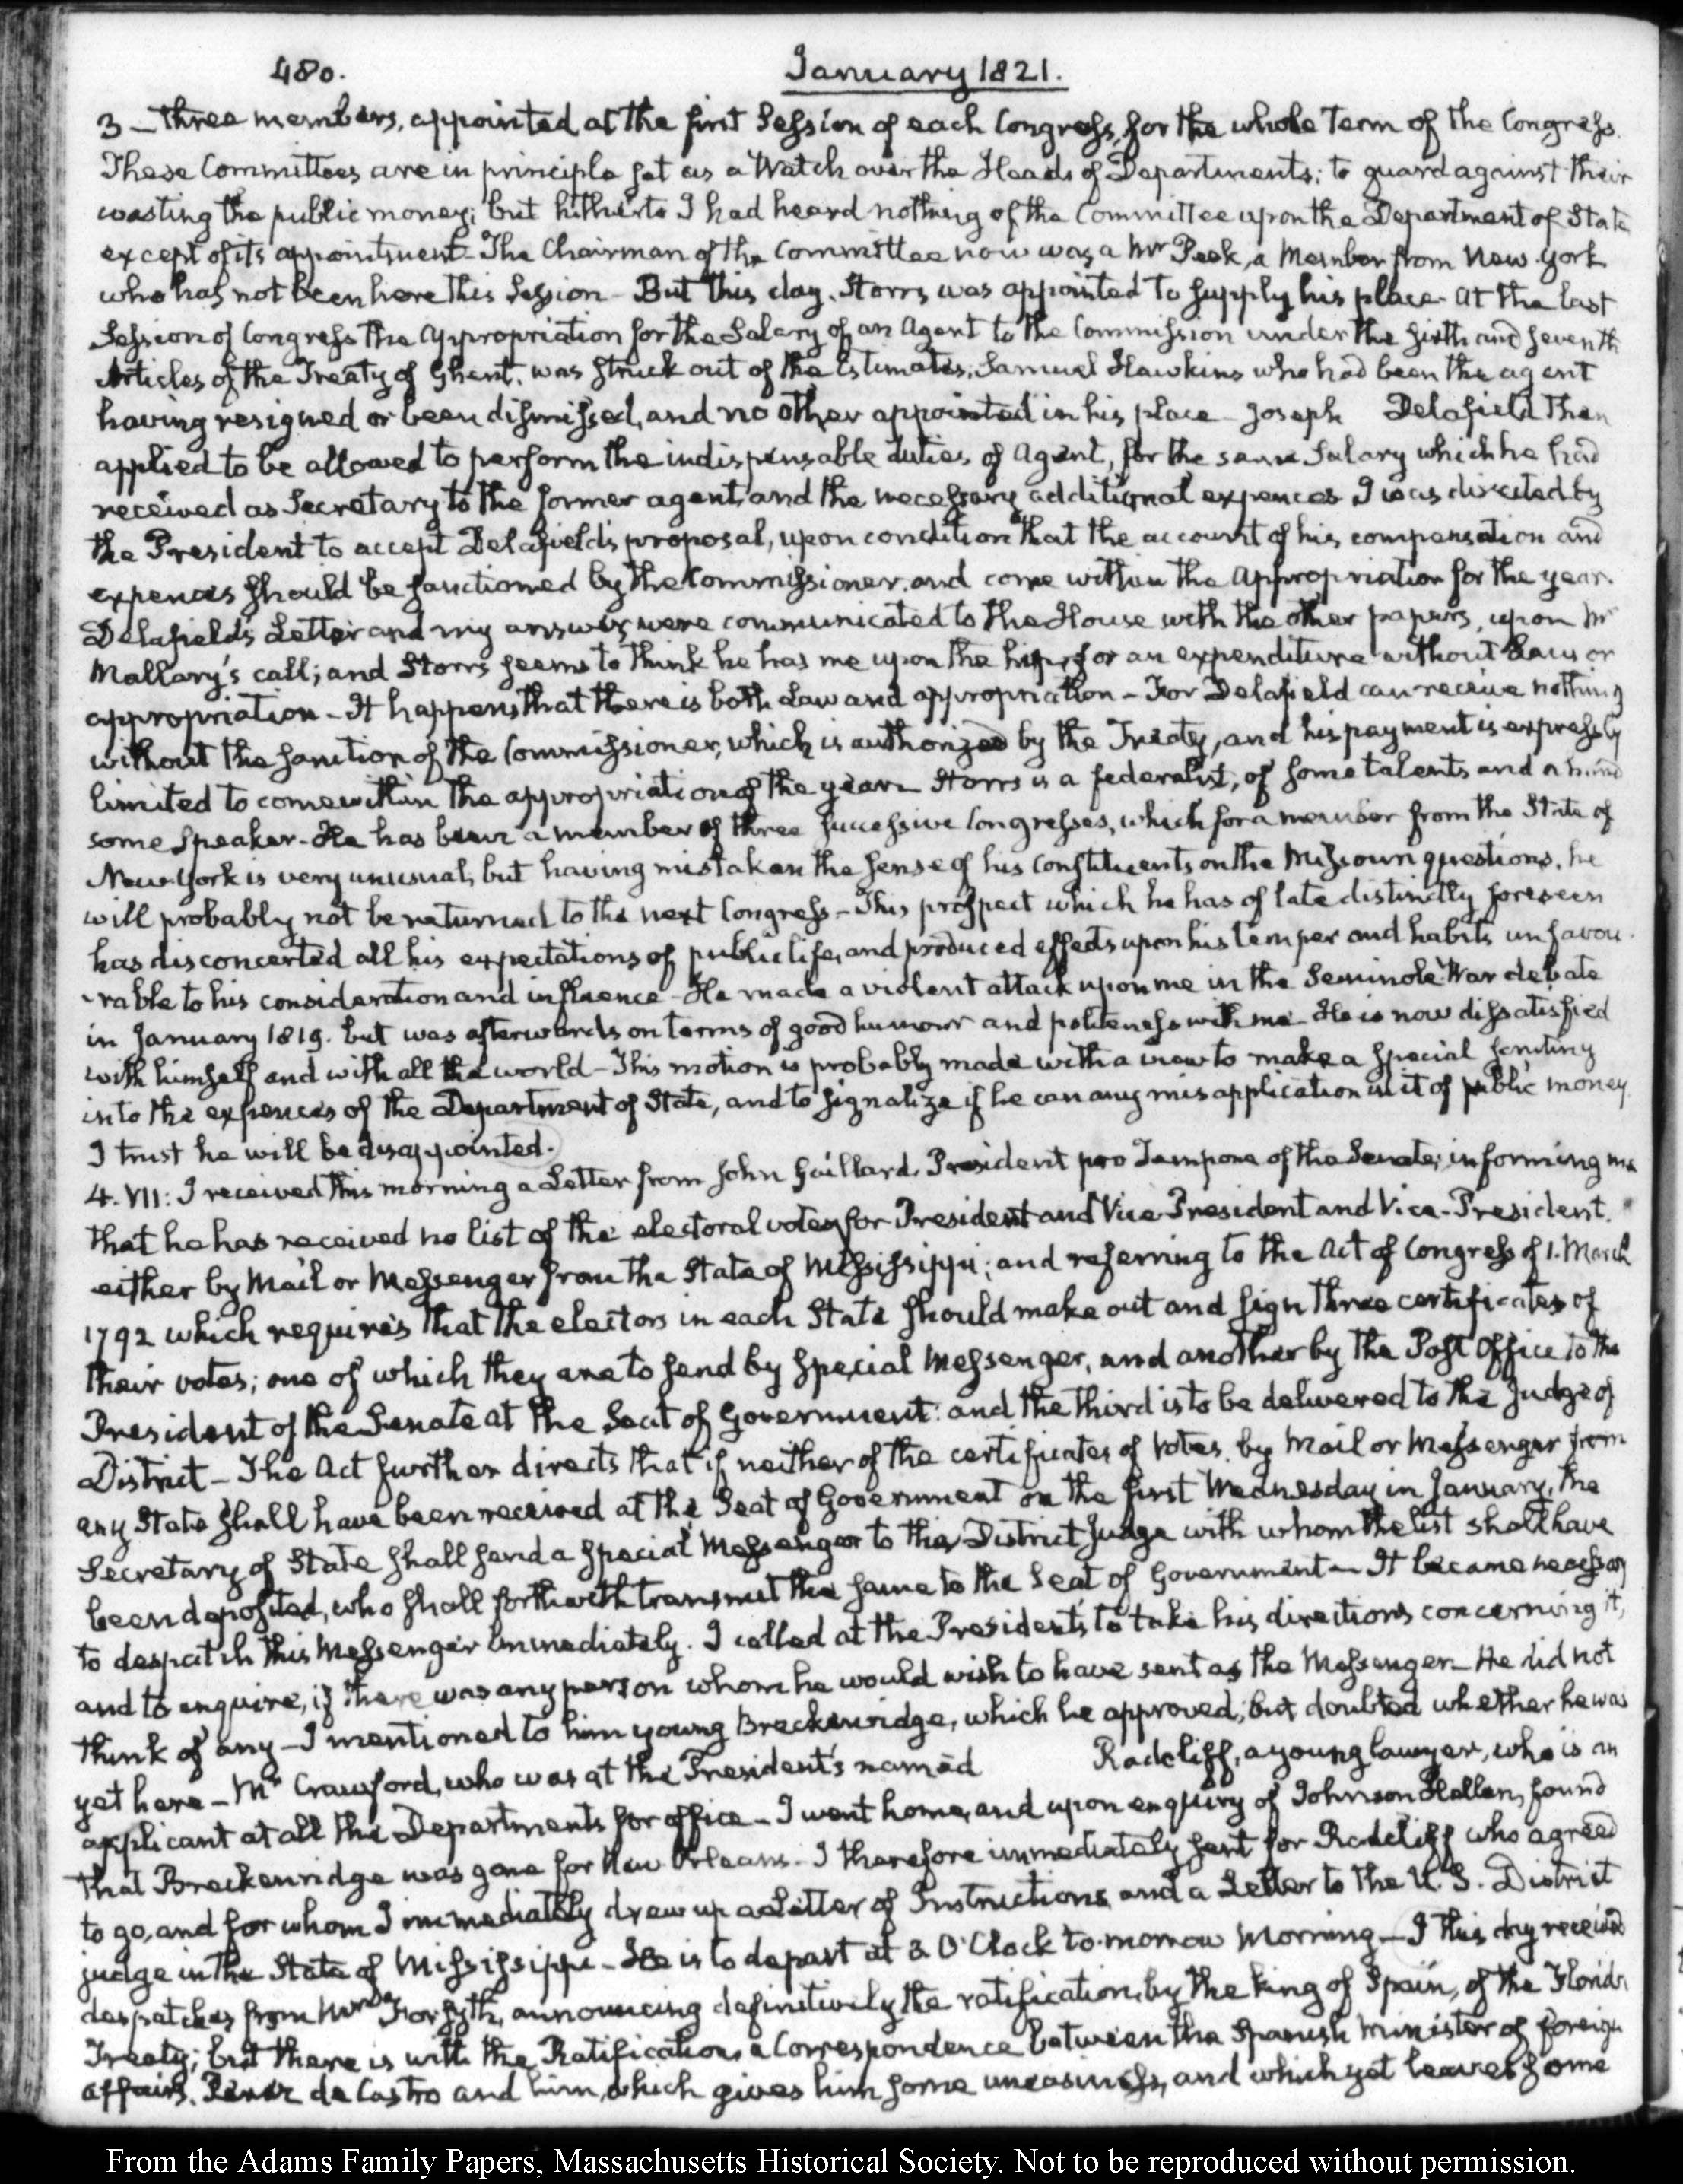 480. January 1821.
3 — three members, appointed at the first Session of each Congress, for the whole Term of the Congress.
These Committees are in principle set as a Watch over the Heads of Departments; to guard against their
wasting the public money; but hitherto I had heard nothing of the Committee upon the Department of State
except of its appointment — The Chairman of the Committee now was a Mr Peek, a Member from New-York
who has not been here this Session — But this day, Storrs was appointed to supply his place. At the last
Session of Congress the Appropriation for the Salary of an Agent to the Commission under the sixth and seventh
Articles of the Treaty of Ghent, was struck out of the Estimates; Samuel Hawkins who had been the agent
having resigned or been dismissed, and no other appointed in his place — Joseph Delafield then
applied to be allowed to perform the indispensable duties of Agent, for the same Salary which he had
received as Secretary to the former agent, and the necessary additional expences I was directed by
the President to accept Delafield's proposal, upon condition that the account of his compensation and
expences should be sanctioned by the Commissioner, and come within the Appropriation for the year.
Delafield's Letter and my answer, were communicated to the House with the other papers, upon Mr
Mallary's call; and Storrs seems to think he has me upon the hip, for an expenditure without Law or
appropriation — It happens that there is both Law and appropriation — For Delafield can receive nothing
without the sanction of the Commissioner, which is authorized by the Treaty, and his payment is expressly
limited to come within the appropriation of the year — Storrs is a federalist, of some talents and a hand
some speaker — He has been a member of three successive Congresses, which for a member from the State of
New-York is very unusual, but having mistaken the sense of his Constituents on the Missouri questions, he
will probably not be returned to the next Congress — This prospect which he has of late distinctly foreseen
has disconcerted all his expectations of public life, and produced effects upon his temper and habits unfavou-
-rable to his consideration and influence — He made a violent attack upon me in the Seminole War debate
in January 1819. but was afterwards on terms of good humour and politeness with me — He is now dissatisfied
with himself and with all the world — This motion is probably made with a view to make a special scrutiny
into the expences of the Department of State, and to signalize if he can any misapplication in it of public money
I trust he will be disappointed.
4. VII: I received this morning a Letter from John Gaillard, President pro Tempore of the Senate; informing me
that he has received no list of the electoral votes for President and Vice President and Vice-President.
either by Mail or Messenger from the State of Mississippi; and referring to the Act of Congress of 1. March
1792 which requires that the electors in each State should make out and sign three certificates of
their votes; one of which they are to send by special Messenger, and another by the Post Office to the
President of the Senate at the Seat of Government: and the third is to be delivered to the Judge of
District — The Act further directs that if neither of the certificates of votes, by Mail or Messenger from
any State shall have been received at the Seat of Government on the first Wednesday in January, the
Secretary of State shall send a special Messenger to the District Judge with whom the list shall have
been deposited, who shall forthwith transmit the same to the Seat of Government — It became necessary
to despatch this Messenger immediately. I called at the President's to take his directions concerning it,
and to enquire, if there was any person whom he would wish to have sent as the Messenger — He did not
think of any — I mentioned to him young Breckenridge, which he approved; but doubted whether he was
yet here — Mr Crawford, who was at the President's named Radcliff, a young lawyer, who is an
applicant at all the Departments for office — I went home, and upon enquiry of Johnson Hellen, found
that Breckenridge was gone for New Orleans — I therefore immediately sent for Radcliff who agreed
to go, and for whom I immediately drew up a Letter of Instructions, and a Letter to the U.S. District
judge in the State of Mississippi — He is to depart at 3 O'Clock to-morrow Morning — I this day received
despatches from Forsyth, announcing definitively the ratification, by the king of Spain, of the Florida
Treaty; but there is with the Ratification, a Correspondence between the Spanish Minister of foreign
affairs, Perez de Castro and him, which gives him some uneasiness, and which yet leaves some
From the Adams Family Papers, Massachusetts Historical Society. Not to be reproduced without permission.